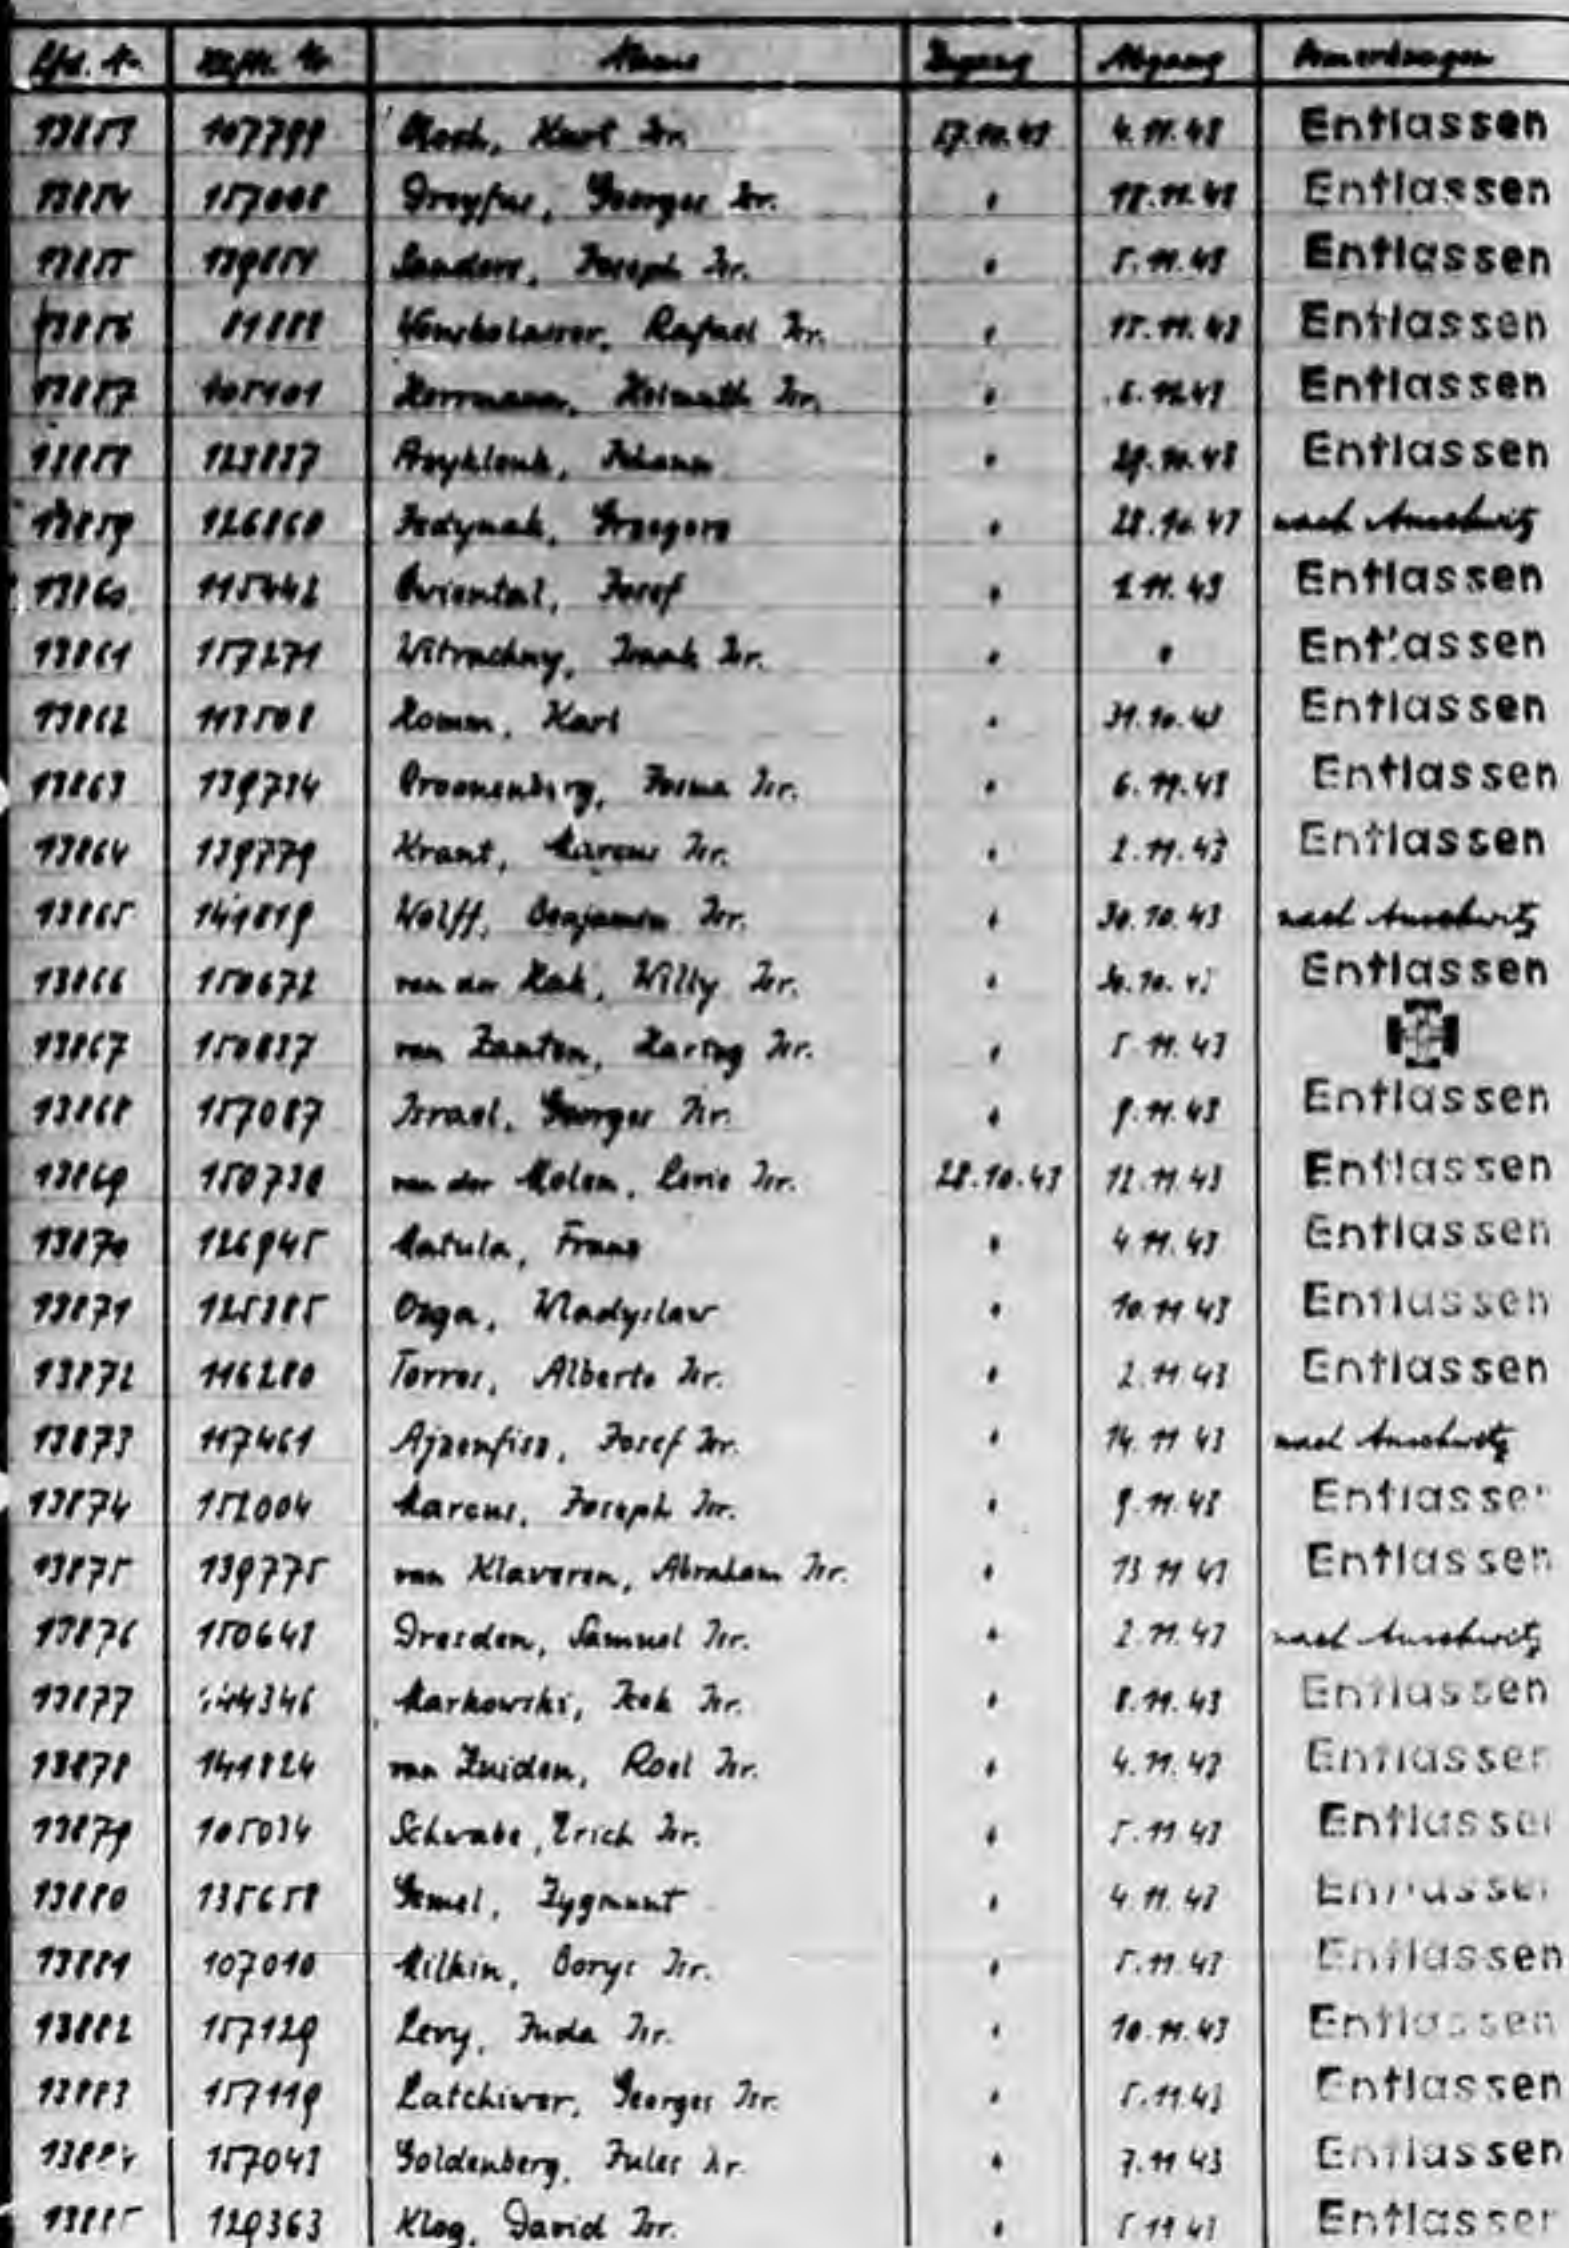 Lfd. Nr. Häftl. Nr. Name Zugang Abgang Anmerkungen
13853 107799 Kurt Isr. 27.10.43 4.11.43 Entlassen
13854 157008 Dreyfus, Georges Isr. " 18.11.43 Entlassen
13855 139854 Sanders, Joseph Isr. " 5.11.43 Entlassen
13856 Rafael Isr. " 15.11.43 Entlassen
13857 105101 Herrmann, Helmuth Isr. " Entlassen
13858 123837 Johann " 29.10.43 Entlassen
13859 126860 Jedynak, Grzegorz " 28.10.43 nach Auschwitz
13860 115442 Oriental, Josef " 2.11.43 Entlassen
13861 157271 Isr. " " Entlassen
13862 113508 Komm, Karl " 31.10.43 Entlassen
13863 139734 Isr. " 6.11.43 Entlassen
13864 139779 Krant, Marcus Isr. " 2.11.43 Entlassen
13865 141819 Wolff, Benjamin Isr. " 30.10.43 nach Auschwitz
13866 150672 van der Hak, Willy Isr. " 30.10.43 Entlassen
13867 150837 van Zanten, Isr. " 5.11.43
13868 157087 Israel, Georges Isr. " 9.11.43 Entlassen
13869 150730 van der Molen, Levie Isr. 28.10.43 12.11.43 Entlassen
13870 126945 Matula, Franz " 4.11.43 Entlassen
13871 125385 Ozga, Wladyslaw " 10.11.43 Entlassen
13872 116280 Torres, Alberto Isr. " 2.11.43 Entlassen
13873 117461 Ajzenfisz, Josef Isr. " 14.11.43 nach Auschwitz
13874 152004 Marcus, Joseph Isr. " 9.11.43 Entlassen
13875 139775 van Klaveren, Abraham Isr. " 13.11.43 Entlassen
13876 150643 Dresden, Samuel Isr. " 2.11.43 nach Auschwitz
13877 144346 Markowski, Icek Isr. " 8.11.43 Entlassen
13878 141824 van Zuiden, Roel Isr. " 4.11.43 Entlassen
13879 105034 Schwabe, Erich Isr. " 5.11.43 Entlassen
13880 135658 Gemel, Zygmunt " 4.11.43 Entlassen
13881 107010 Milkin, Borys Isr. " 5.11.43 Entlassen
13882 157129 Levy, Juda Isr. " 10.11.43 Entlassen
13883 157119 Latchiver, Georges Isr. " 5.11.43 Entlassen
13884 157043 Goldenberg, Jules Isr. " 7.11.43 Entlassen
13885 129363 Klog, David Isr. " 5.11.43 Entlassen